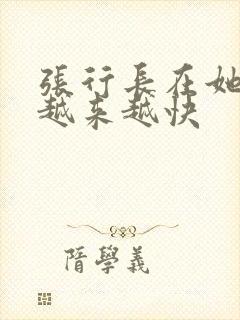 張行長在她
越来越快
隋學義